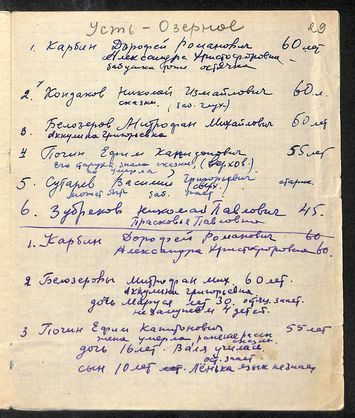 Усть-Озерное
29
1. Карбин Дорофей Романович 60 лет
Александра Христофоровна -
бабушка остячка
2. Кондаков Николай Измайлович 60 л.
сказки, (заб. глух)
3. Белозеров Митрофан Михайлович 60 лет
Акулина Григорьевна
4 Почин Ефим Капитонович 55 лет
его старуха знала сказки,
умерла
5. Сугарев Василий Григорьевич старик.
может знает
6. Зубреков Николай Павлович 45.
Прасковья Павловна
1. Карбин Дорофей Романович 60.
Александра Христофоровна 60.
2 Белозеровы Митрофан мих. 60 лет.
Акулина Григорьевна
дочь Маруся лет 30. знает.
не замужем 4 дет.
3 Почин Ефим Капитонович 55 лет
жена умерла сказки.
дочь 16 лет. Валя училась
ост. знает.
сын 10 лет Лёнька язык не знает